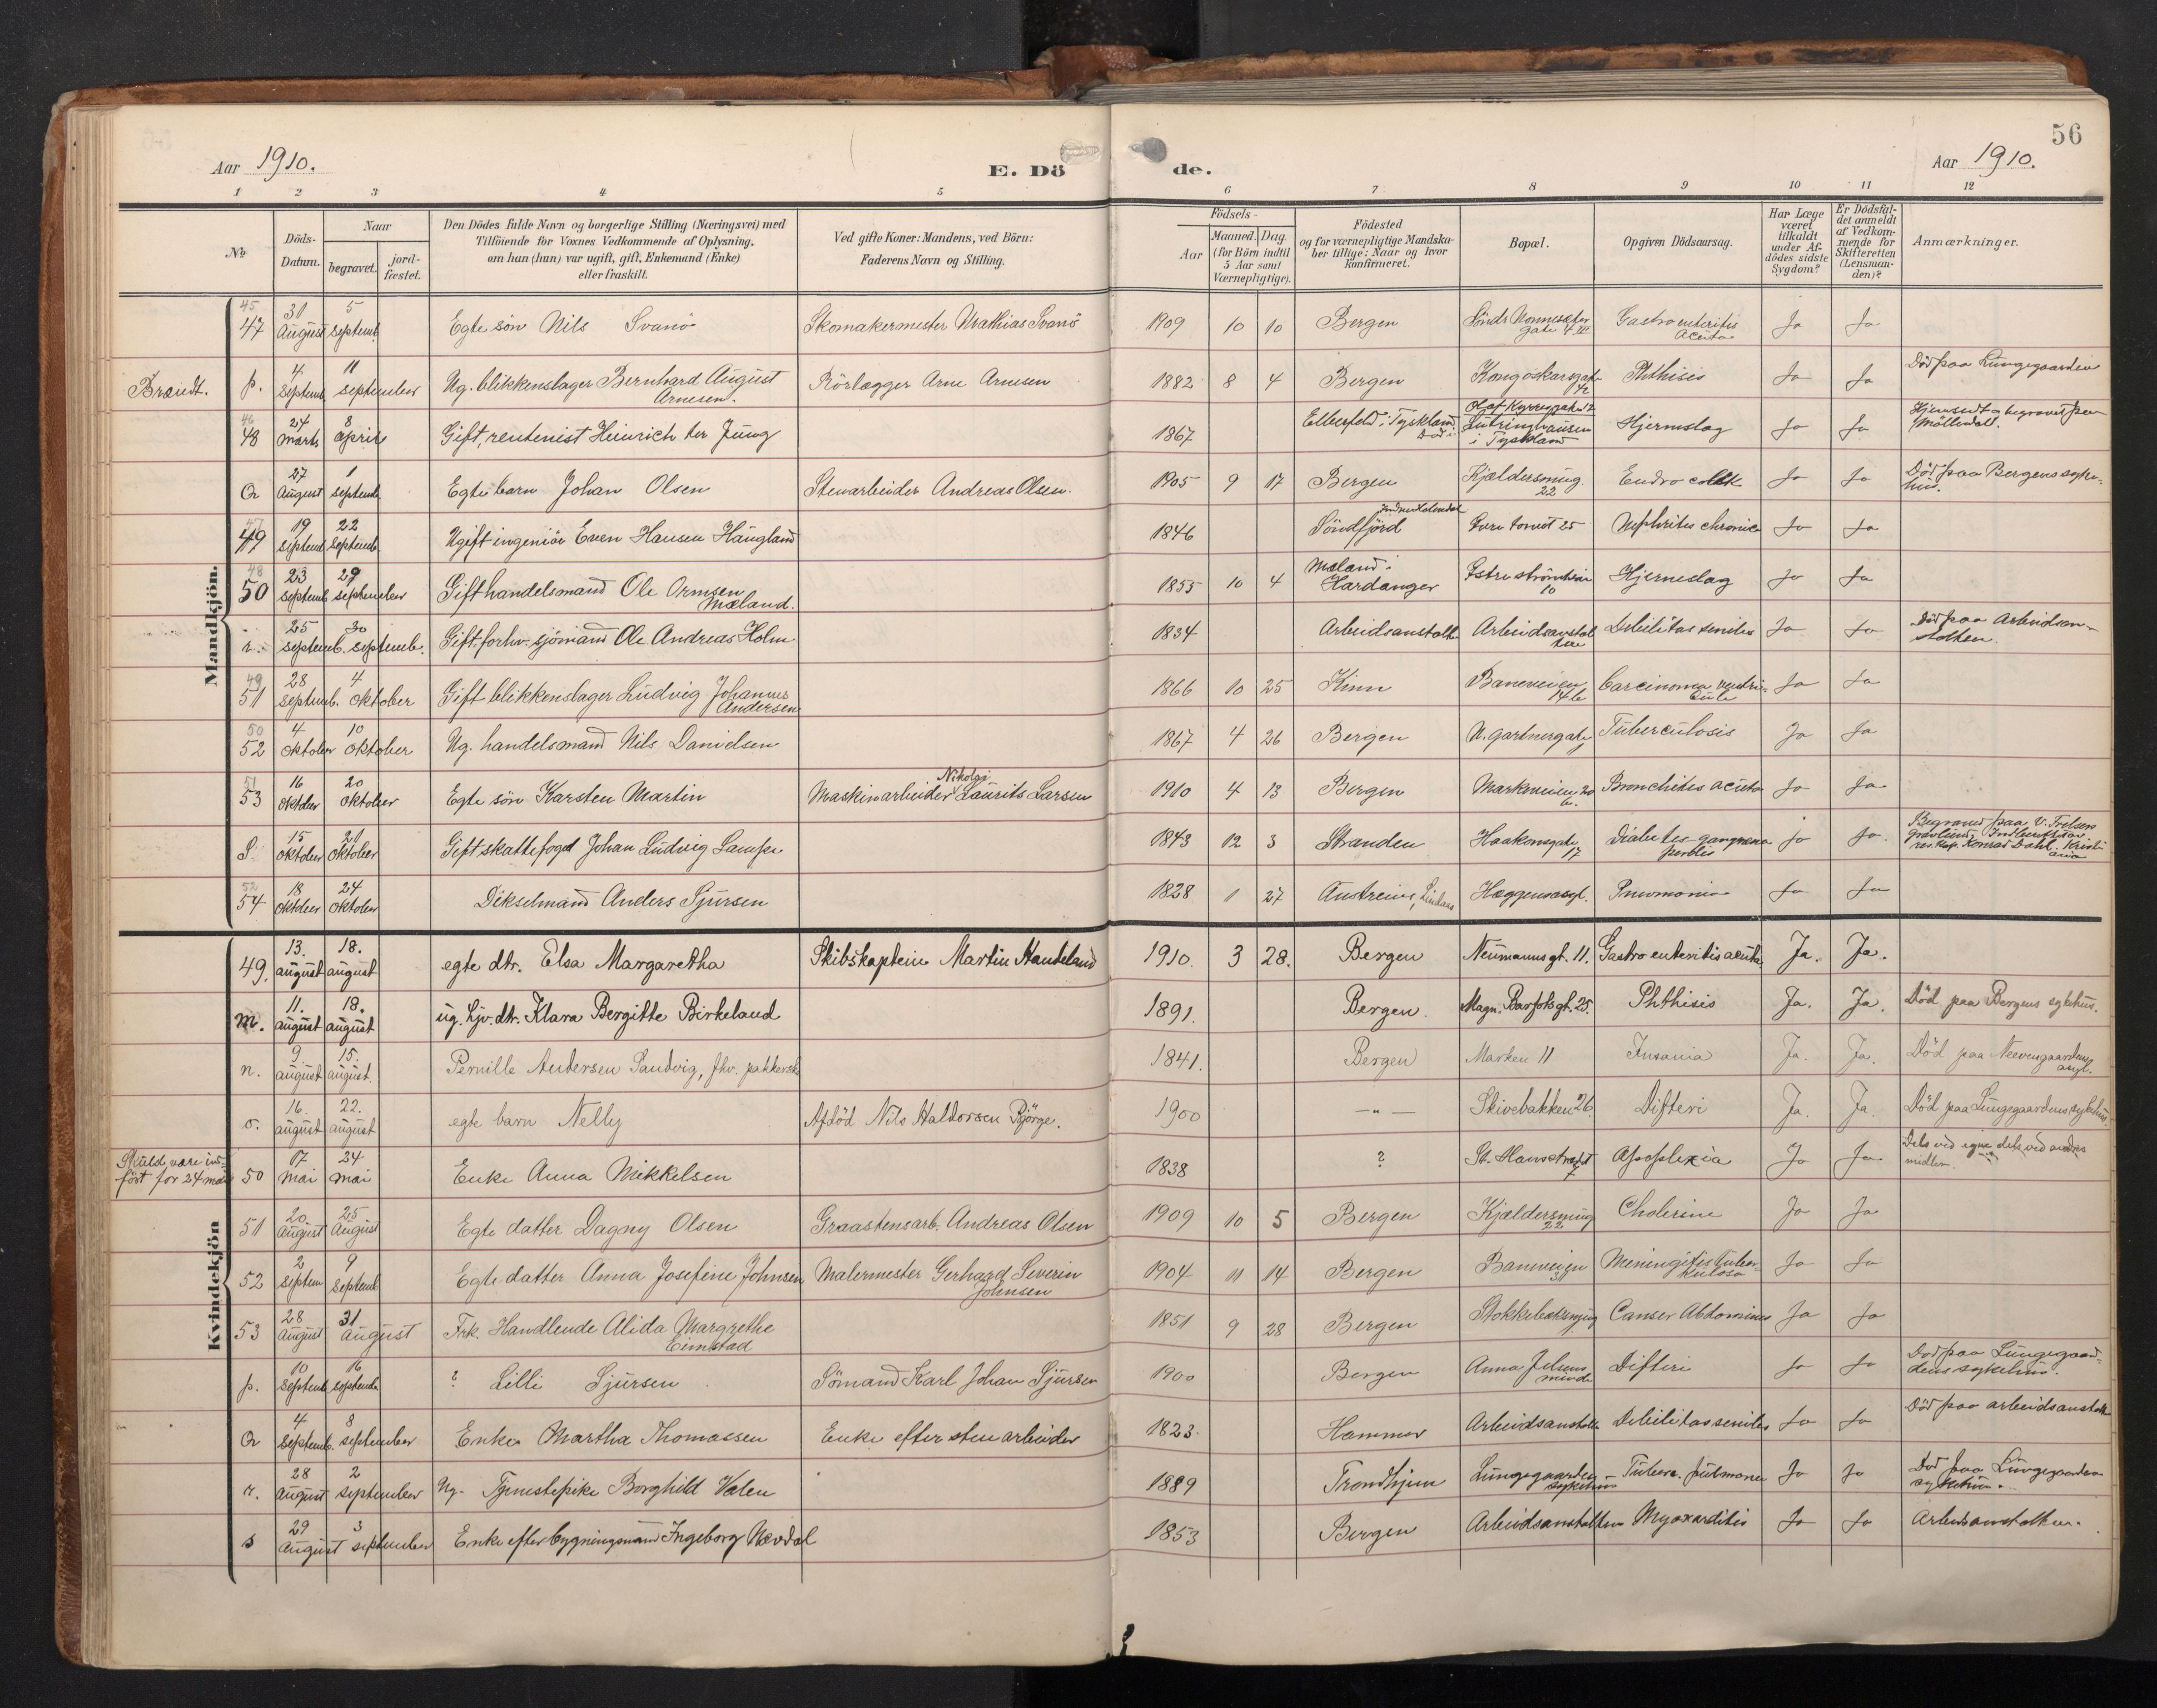 56
Aar 1910.
E. Dö de.
Aar 1910.
1 2 3 4 5 6 7 8 9 10 11 12
No
Döds-Datum.
Naar
begravet.
jord-fæstet.
Den Dödes fulde Navn og borgerlige Stilling (Næringsvei) med
Tilföiende for Voxnes Vedkommende af Oplysning,
om han (hun) var ugift, gift, Enkemand (Enke)
eller fraskilt.
Ved gifte Koner: Mandens, ved Börn:
Faderens Navn og Stilling.
Födsels-
Aar
Maaned. Dag.
(for Börn indtil
5 Aar samt
Værnepligtige).
Födested
og for værnepligtige Mandska-
ber tillige: Naar og hvor
konfirmeret.
Bopæl.
Opgiven Dödsaarsag.
Har Læge
været
tilkaldt
under Af-
dödes sidste
Sygdom?
Er Dödsfal-
det anmeldt
af Vedkom-
mende for
Skifteretten
(Lensman-
den)?
Anmærkninger.
Mandkjön.
45 47 31 August 5 Septemb. Egte sön Nils Svanö Skomakermester Mathias Svanö 1909 10 10 Bergen gate 4 III Gastroenteritis Acuta Ja Ja
Brandt. p. 4 Septemb 11 September Ug. blikkenslager Bernhard August Arnesen. Rörlægger Arne Arnesen 1882 8 4 Bergen Kongoskarsgate Phthisis Ja Ja Död paa Lungegaarden
46 48 24 Marts 8 April Gift, rentenist Heinrich ter Jung 1867 Elberfeld i Tyskland. Död i Olaf Kyrresgate 12 Lutringhausen i Tyskland Hjerneslag Ja Ja Hjemsendt og begravet paa Möllendal.
Q 27 August 1 Septemb. Egte barn Johan Olsen Stenarbeider Andreas Olsen. 1905 9 17 Bergen Kjældersmug. 22 Ja Ja Död paa Bergens syke-hus.
47 49 19 Septemb 22 Septemb. Ugift ingeniör Even Hansen Haugland 1846 Söndfjörd 25 Nephritis chronica Ja Ja
48 50 23 Septemb 29 September Gift handelsmand Ole Ormsen Mæland. 1855 10 4 Mæland i Hardanger 10 Hjerneslag Ja Ja
r. 25 Septemb. 30 Septemb. Gift. forhv. sjömand Ole Andreas Holm 1834 Arbeidsanstalten Arbeidsanstalten Debilitas senilis Ja Ja Död paa Arbeidsan-stalten.
49 51 28 Septemb. 4 Oktober Gift blikkenslager Ludvig Johannes Andersen 1866 10 25 Kinn Baneveien 14b Carcinoma ventri-culi Ja Ja
50 52 4 Oktober 10 Oktober Ug. handelsmand Nils Danielsen 1867 4 26 Bergen N. gartnergate 1 Tuberculosis Ja Ja
51 53 16 Oktober 20 Oktober Egte sön Karsten Martin Maskinarbeider Nikolai Laurits Larsen 1910 4 13 Bergen Markeveien 20 b. Bronchitis acuta Ja Ja
S. 15 Oktober 21 Oktober Gift skattefoged Johan Ludvig Lampe 1843 12 3 Stranden Haakonsgate 17 Diabetes gangræna Ja Ja. Begravet paa V. Frelsers gravlund. Konrad Dahl. Kristi-ania
52 54 18 Oktober 24 Oktober Dikselmand Anders Sjursen 1828 1 27 Austreim, Lindaas Hæggensasyl. Pneumonia Ja Ja
Kvindekjön
49. 13. august 18. august egte dtr. Elsa Margaretha Skibskaptein Martin Handeland 1910. 3 28. Bergen Neumannsgt. 11. Gastro enteritis acuta Ja. Ja.
m. 11. august 18. august ug. hjv. dtr. Klara Bergitte Birkeland 1891. Bergen. Magn. Barfotsgt. 25. Phthisis Ja. Ja. Död paa Bergens sykehus.
n. 9. august 15. august. Pernille Andersen Sandvig, fhv. pakkersk. 1841. Bergen Marken 11 Insania Ja. Ja. Död paa Neevengaardens asyl.
o. 16. august 22. august egte barn Nelly Afdöd Nils Haldorsen Björge. 1900 — " — Skivebakken 26 Difteri Ja. Ja. Död paa Lungegaardens sykehus.
Skuld være ind-
fört for 24 mai 50 17 Mai 24 Mai Enke Anna Mikkelsen 1838 ? St. Hansstrædet 7 Apoplexia Ja Ja Dels ved egne dels ved andres midler.
51 20 August 25 August Egte datter Dagny Olsen Graastensarb. Andreas Olsen 1909 10 5 Bergen Kjældersmug 22 Cholerine Ja Ja
52 2 Septem 9 Septemb Egte datter Anna Josefine Johnsen Malermester Gerhard Severin Johnsen 1904 11 14 Bergen Baneveien 31 Meningitis Tuber-kulosa Ja Ja
53 28 August 31 August Frk. Handlende Alida Margrethe Eimstad 1851 9 28 Bergen Stokkebaksmug Canser Abdominis Ja Ja
p. 10 Septemb 16 Septemb ? Lilli Sjursen Sömand Karl Johan Sjursen 1900 Bergen Anna Jebsens minde Difteri Ja Ja Död paa Lungegaar-dens sykehus.
Q 4 Septemb. 8 September Enke Martha Thomassen Enke efter stenarbeider 1823. Hammer Arbeidsanstalten Debilitas senilis Ja Ja Död paa arbeidsanstalten
r. 28 August 2 September Ug. Tjenestepike Borghild Valen 1889 Trondhjem Lungegaardens sykehus Tuberc. pulmonum Ja Ja Död paa Lungegaardens sykehus.
s 29 August 3 September Enke efter bygningsmand Ingeborg Nævdal 1853 Bergen Arbeidsanstalten Myocarditis Ja Ja Arbeidsanstalten.